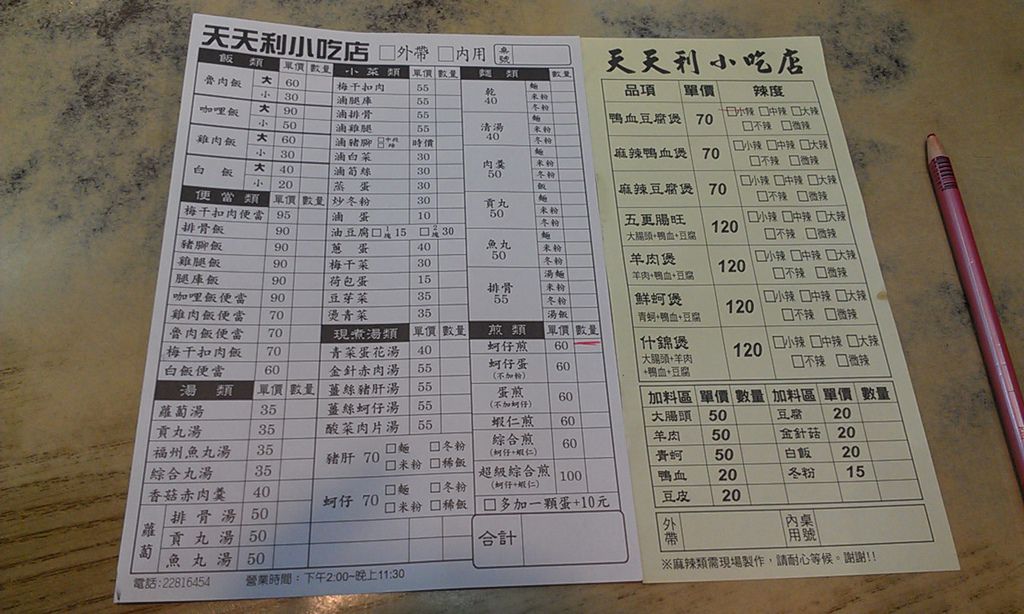 天天利小吃店 □外帶 □內用 桌號
飯類 單價 數量
魯肉飯 大 60
小 30
咖哩飯 大 90
小 50
雞肉飯 大 60
小 30
白飯 大 40
小 20
便當類 單價 數量
梅干扣肉便當 95
排骨飯 90
豬腳飯 90
雞腿飯 90
腿庫飯 90
咖哩飯便當 90
雞肉飯便當 70
魯肉飯便當 70
梅干扣肉飯 70
白飯便當 60
湯類 單價 數量
蘿蔔湯 35
貢丸湯 35
福州魚丸湯 35
綜合丸湯 35
香菇赤肉羹 40
蘿蔔
排骨湯 50
貢丸湯 50
魚丸湯 50
小菜類 單價 數量
梅干扣肉 55
滷腿庫 55
滷排骨 55
滷雞腿 55
滷豬腳 時價
滷白菜 30
滷筍絲 30
蒸蛋 30
炒冬粉 30
滷蛋 10
油豆腐 □1塊 15 □2塊 30
蔥蛋 40
梅干菜 30
荷包蛋 15
豆芽菜 35
燙青菜 35
現煮湯類 單價 數量
青菜蛋花湯 40
金針赤肉湯 55
薑絲豬肝湯 55
薑絲蚵仔湯 55
酸菜肉片湯 55
豬肝 70 □麵 □冬粉
□米粉 □稀飯
蚵仔 70 □麵 □冬粉
□米粉 □稀飯
麵類 數量
乾 40 麵
米粉
冬粉
清湯 40 麵
米粉
冬粉
肉羹 50 麵
米粉
冬粉
飯
貢丸 50 麵
米粉
冬粉
魚丸 50 麵
米粉
冬粉
排骨 55 湯麵
米粉
冬粉
湯飯
煎類 單價 數量
蚵仔煎 60
蚵仔蛋 (不加粉) 60
蛋煎 (不加蚵仔) 60
蝦仁煎 60
綜合煎 (蚵仔+蝦仁) 60
超級綜合煎 (蚵仔+蝦仁) 100
□多加一顆蛋+10元
合計
電話:22816454 營業時間:下午2:00~晚上11:30
天天利小吃店
品項 單價 辣度
鴨血豆腐煲 70 □小辣 □中辣 □大辣
□不辣 □微辣
麻辣鴨血煲 70 □小辣 □中辣 □大辣
□不辣 □微辣
麻辣豆腐煲 70 □小辣 □中辣 □大辣
□不辣 □微辣
五更腸旺 120 □小辣 □中辣 □大辣
大腸頭+鴨血+豆腐 □不辣 □微辣
羊肉煲 120 □小辣 □中辣 □大辣
羊肉+鴨血+豆腐 □不辣 □微辣
鮮蚵煲 120 □小辣 □中辣 □大辣
青蚵+鴨血+豆腐 □不辣 □微辣
什錦煲 120 □小辣 □中辣 □大辣
大腸頭+羊肉
+鴨血+豆腐 □不辣 □微辣
加料區 單價 數量 加料區 單價 數量
大腸頭 50 豆腐 20
羊肉 50 金針菇 20
青蚵 50 白飯 20
鴨血 20 冬粉 15
豆皮 20
外帶 內用 桌號
※麻辣類需現場製作,請耐心等候。謝謝!!